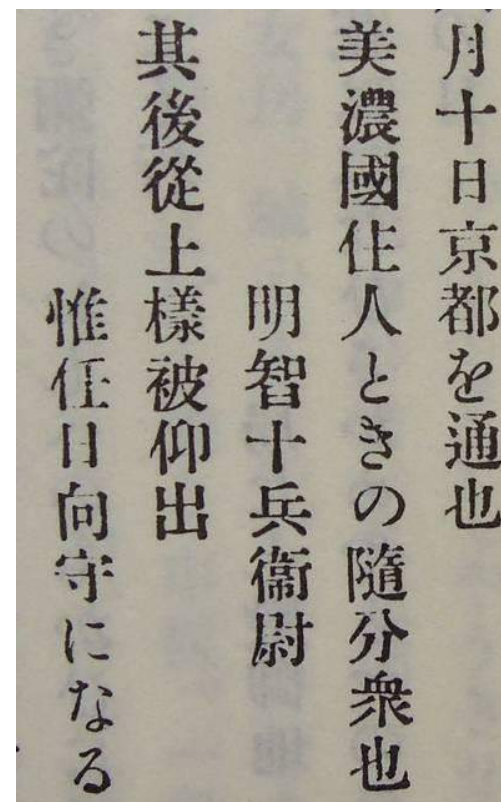 月十日京都を通也
美濃國住人ときの隨分衆也
明智十兵衞尉
其後從上樣被仰出
惟任日向守になる